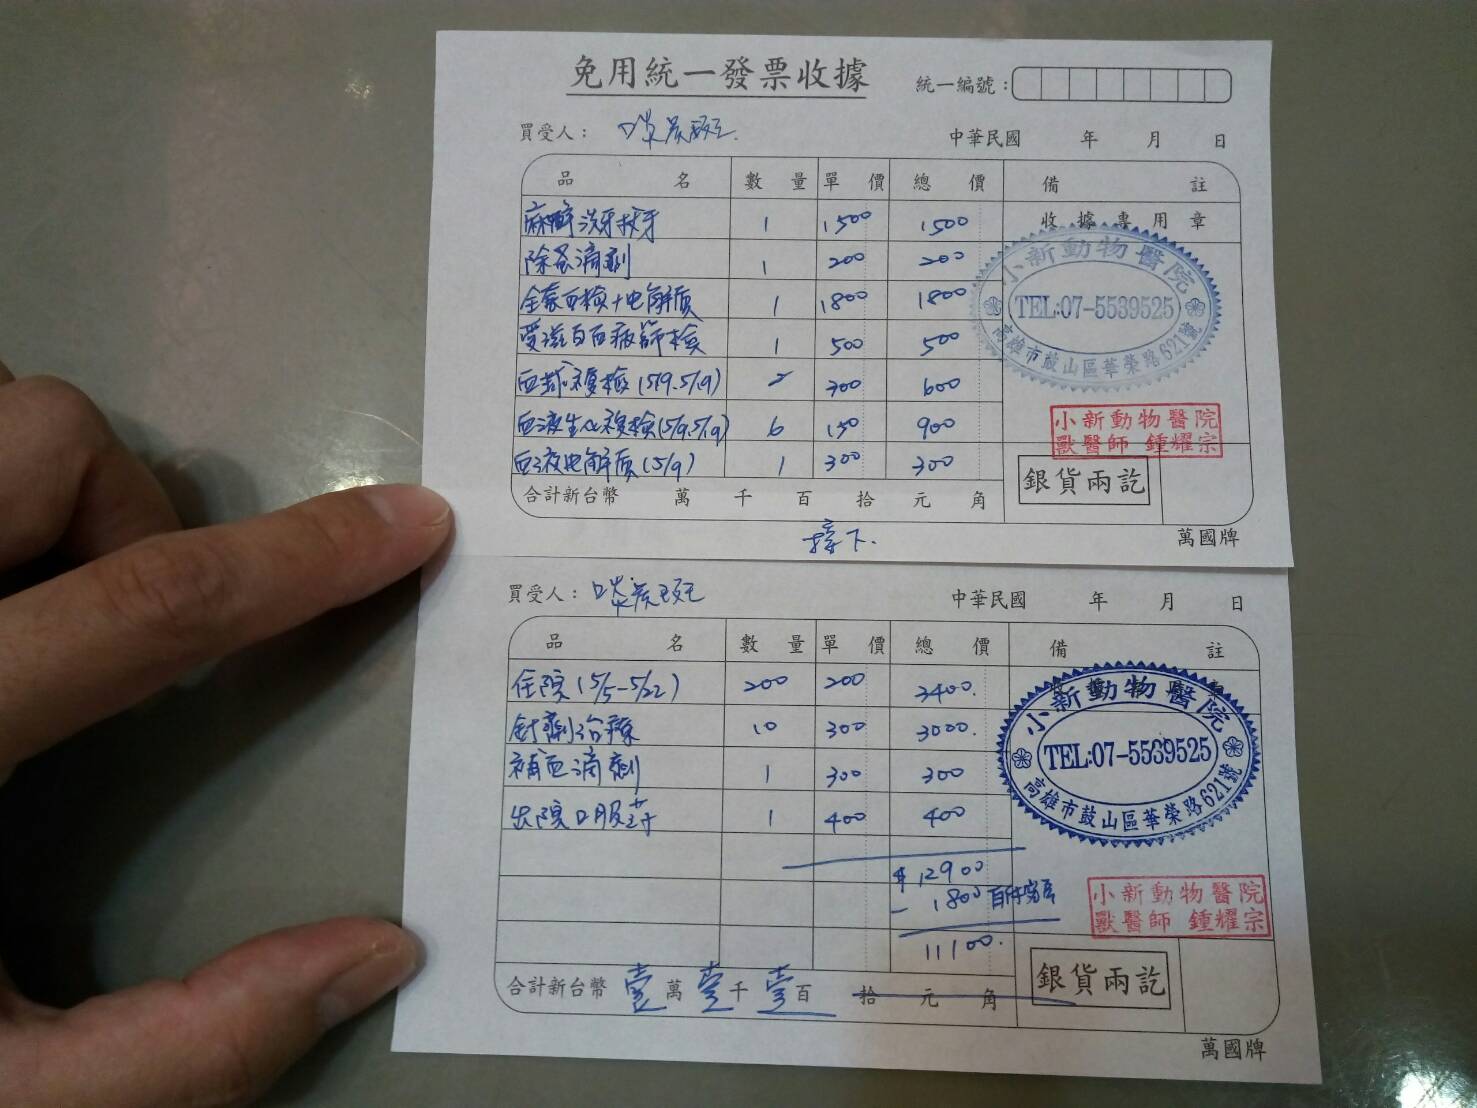 免用統一發票收據
統一編號：
買受人：
中華民國 年 月 日
品名 數量 單價 總價 備註
收據專用章
麻醉洗牙拔牙 1 1500 1500
除蚤滴劑 1 200 200
全套血檢+电解质 1 1800 1800
愛滋白血病篩檢 1 500 500
小新動物醫院
TEL:07-5539525
高雄市鼓山區華榮路621號
複檢(5/9.5/19) 2 300 600
血液生化複檢(5/9.5/19) 6 150 900
血液电解质(5/9) 1 300 300
小新動物醫院
獸醫師 鍾耀宗
銀貨兩訖
合計新台幣 萬 千 百 拾 元 角
接下.
萬國牌
買受人：
中華民國 年 月 日
品名 數量 單價 總價 備註
住院(5/5-5/22) 200 200 3400.
針劑治療 10 300 3000.
補血滴劑 1 300 300
出院口服葯 1 400 400
小新動物醫院
TEL:07-5539525
高雄市鼓山區華榮路621號
$12900
-1800
11100.
小新動物醫院
獸醫師 鍾耀宗
銀貨兩訖
合計新台幣 壹萬壹千壹百 拾 元 角
萬國牌